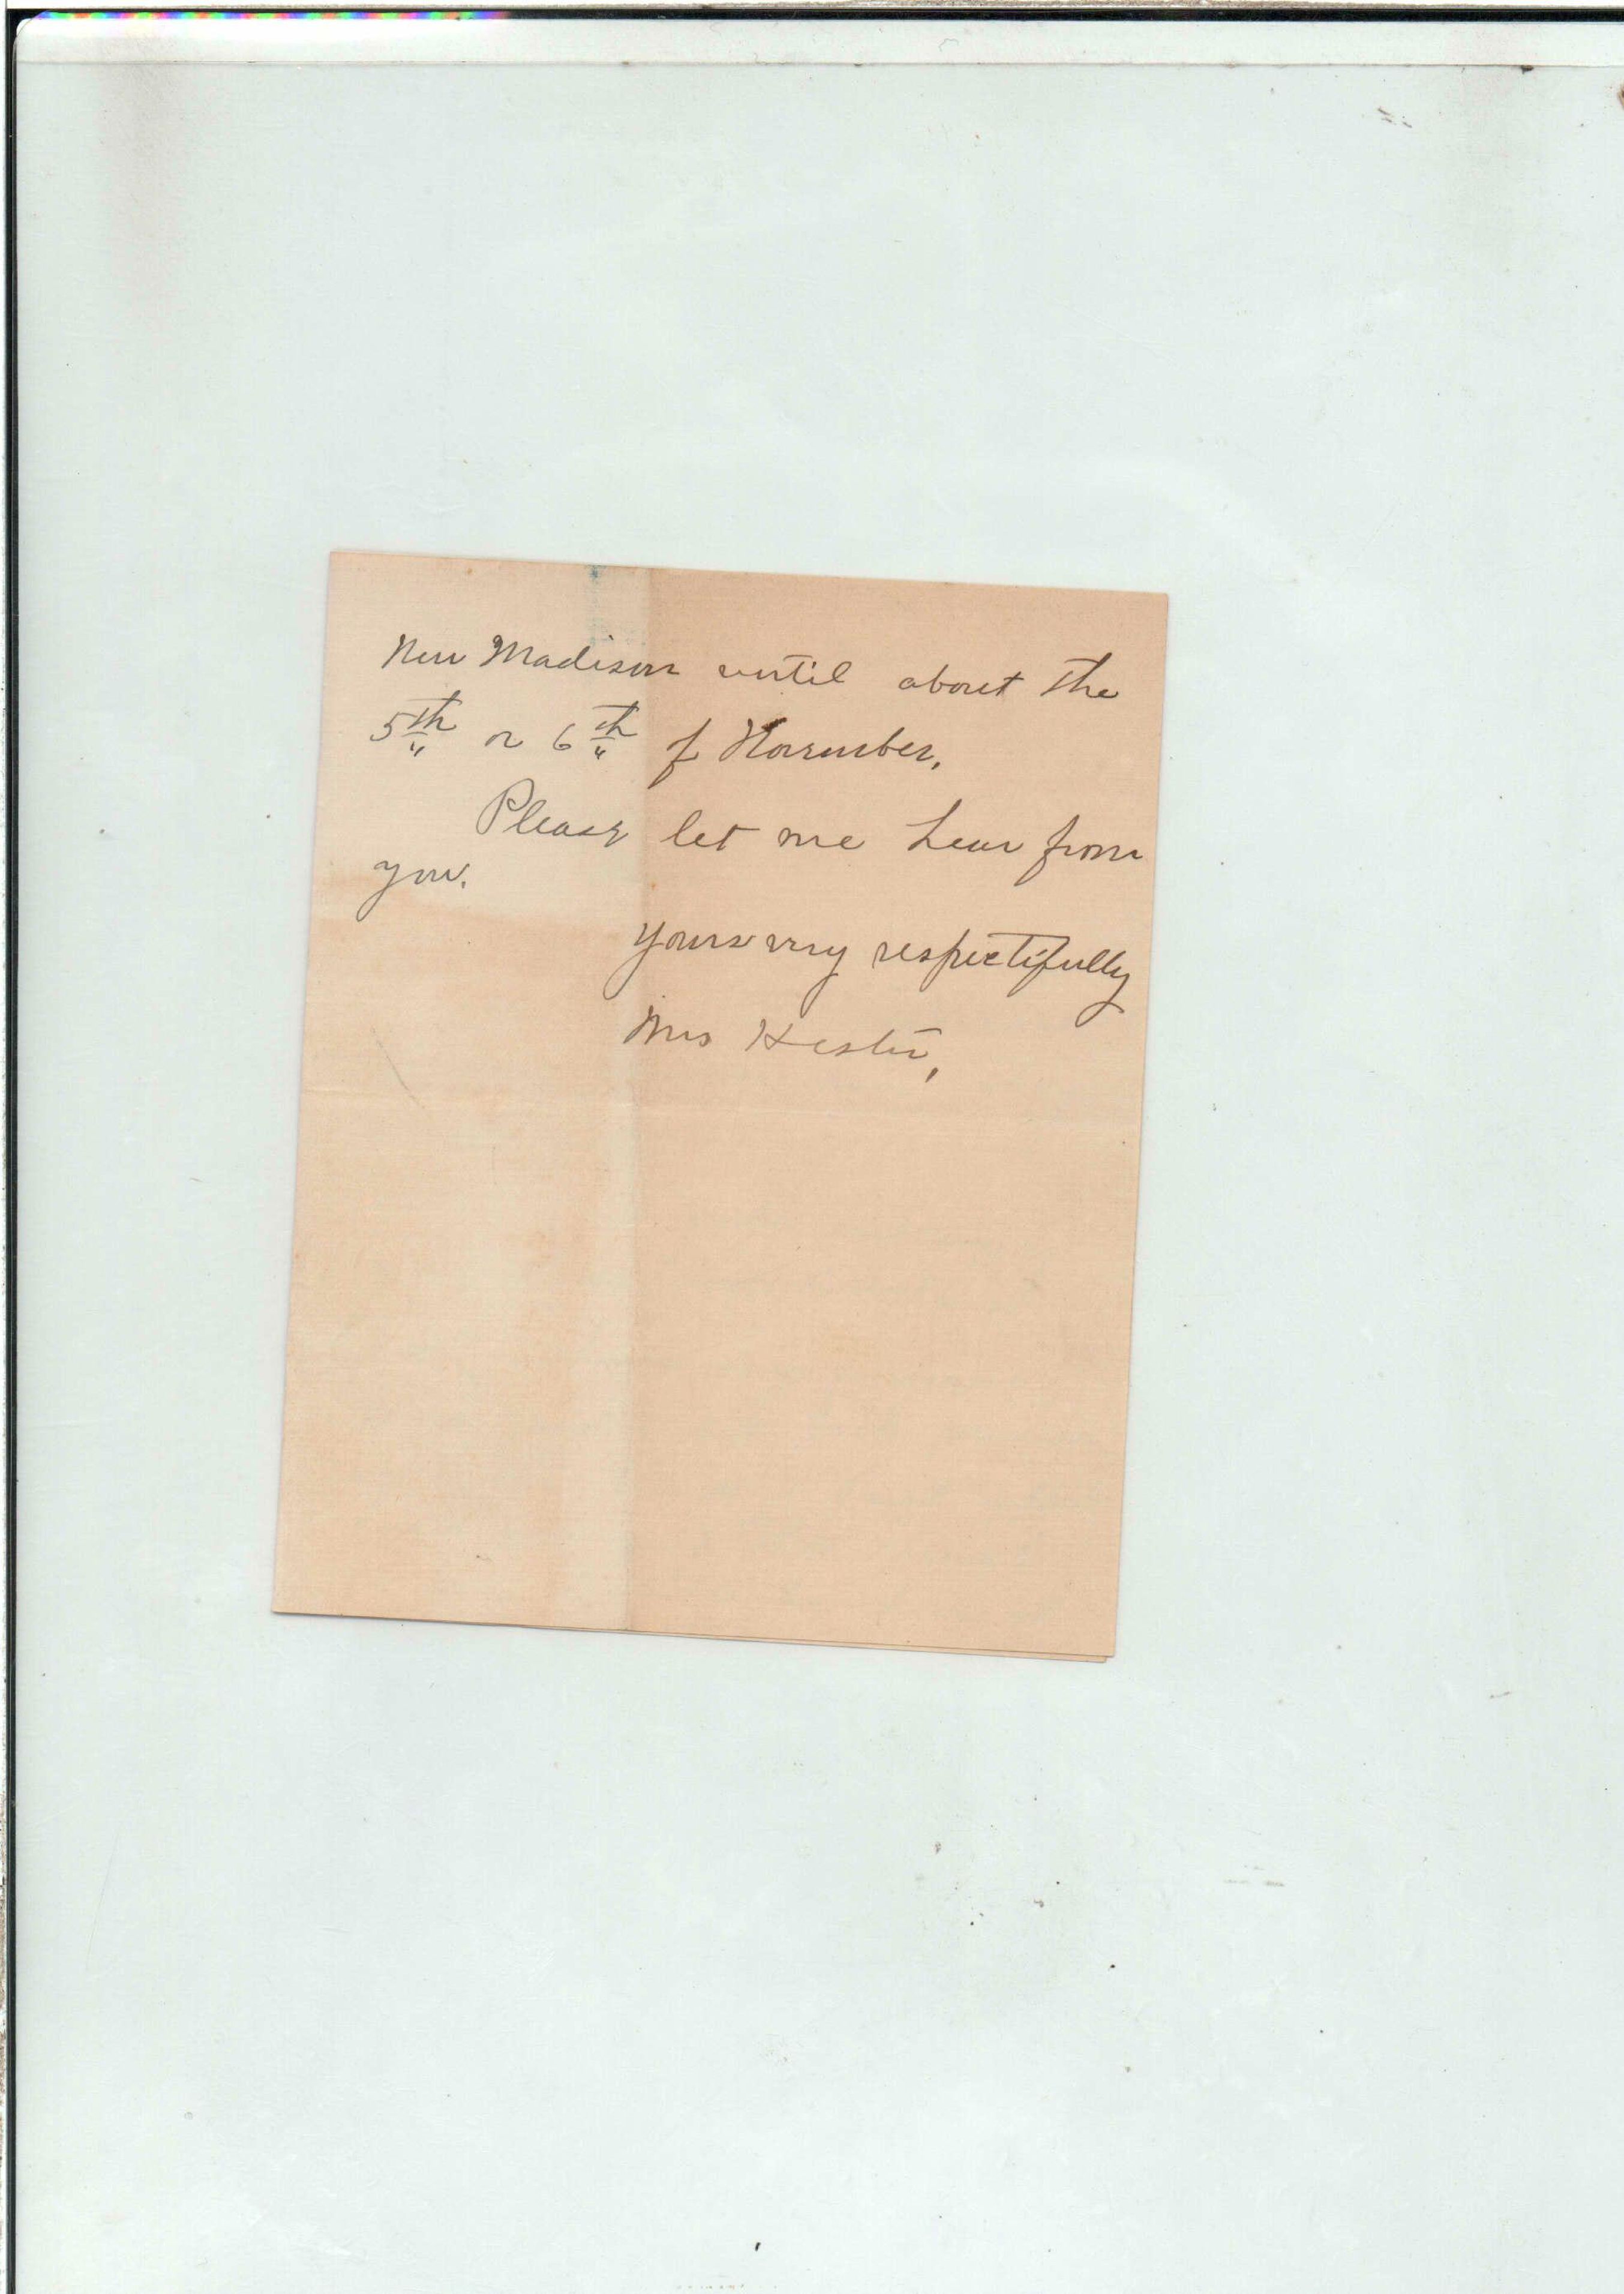 New Madison until about the
5th or 6th of November.
Please let me hear from
you.
Yours very respectifully
Mrs Hester,